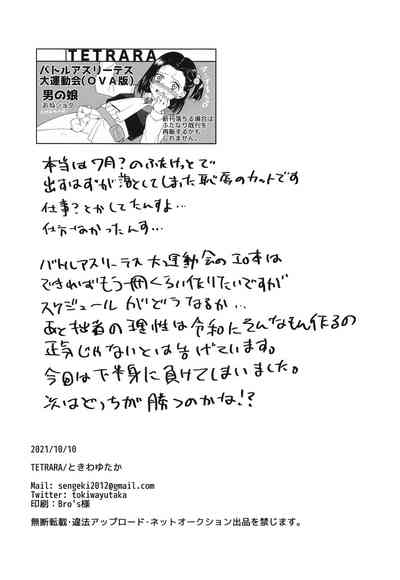 TETRARA
バトルアスリーテス
大運動会(OVA版)
男の娘
おねショタ
新刊落ちる場合は
ふたなり既刊を
再販するかも
しれません。
本当は7月?のふたけっとで
出すはずが落としてしまった恥辱のカットです
仕事?とかしてたんすよ…
仕方なかったんす…
バトルアスリーテス大運動会のエロ本は
できればもう一冊くらい作りたいですが
スケジュールがどうなるか…
あと拙者の理性は令和にそんなもん作るの
正気じゃないとは告げています。
今回は下半身に負けてしまいました。
次はどっちが勝つのかな!?
2021/10/10
TETRARA/ときわゆたか
Mail: sengeki2012@gmail.com
Twitter: tokiwayutaka
印刷：Bro's様
無断転載･違法アップロード･ネットオークション出品を禁じます。